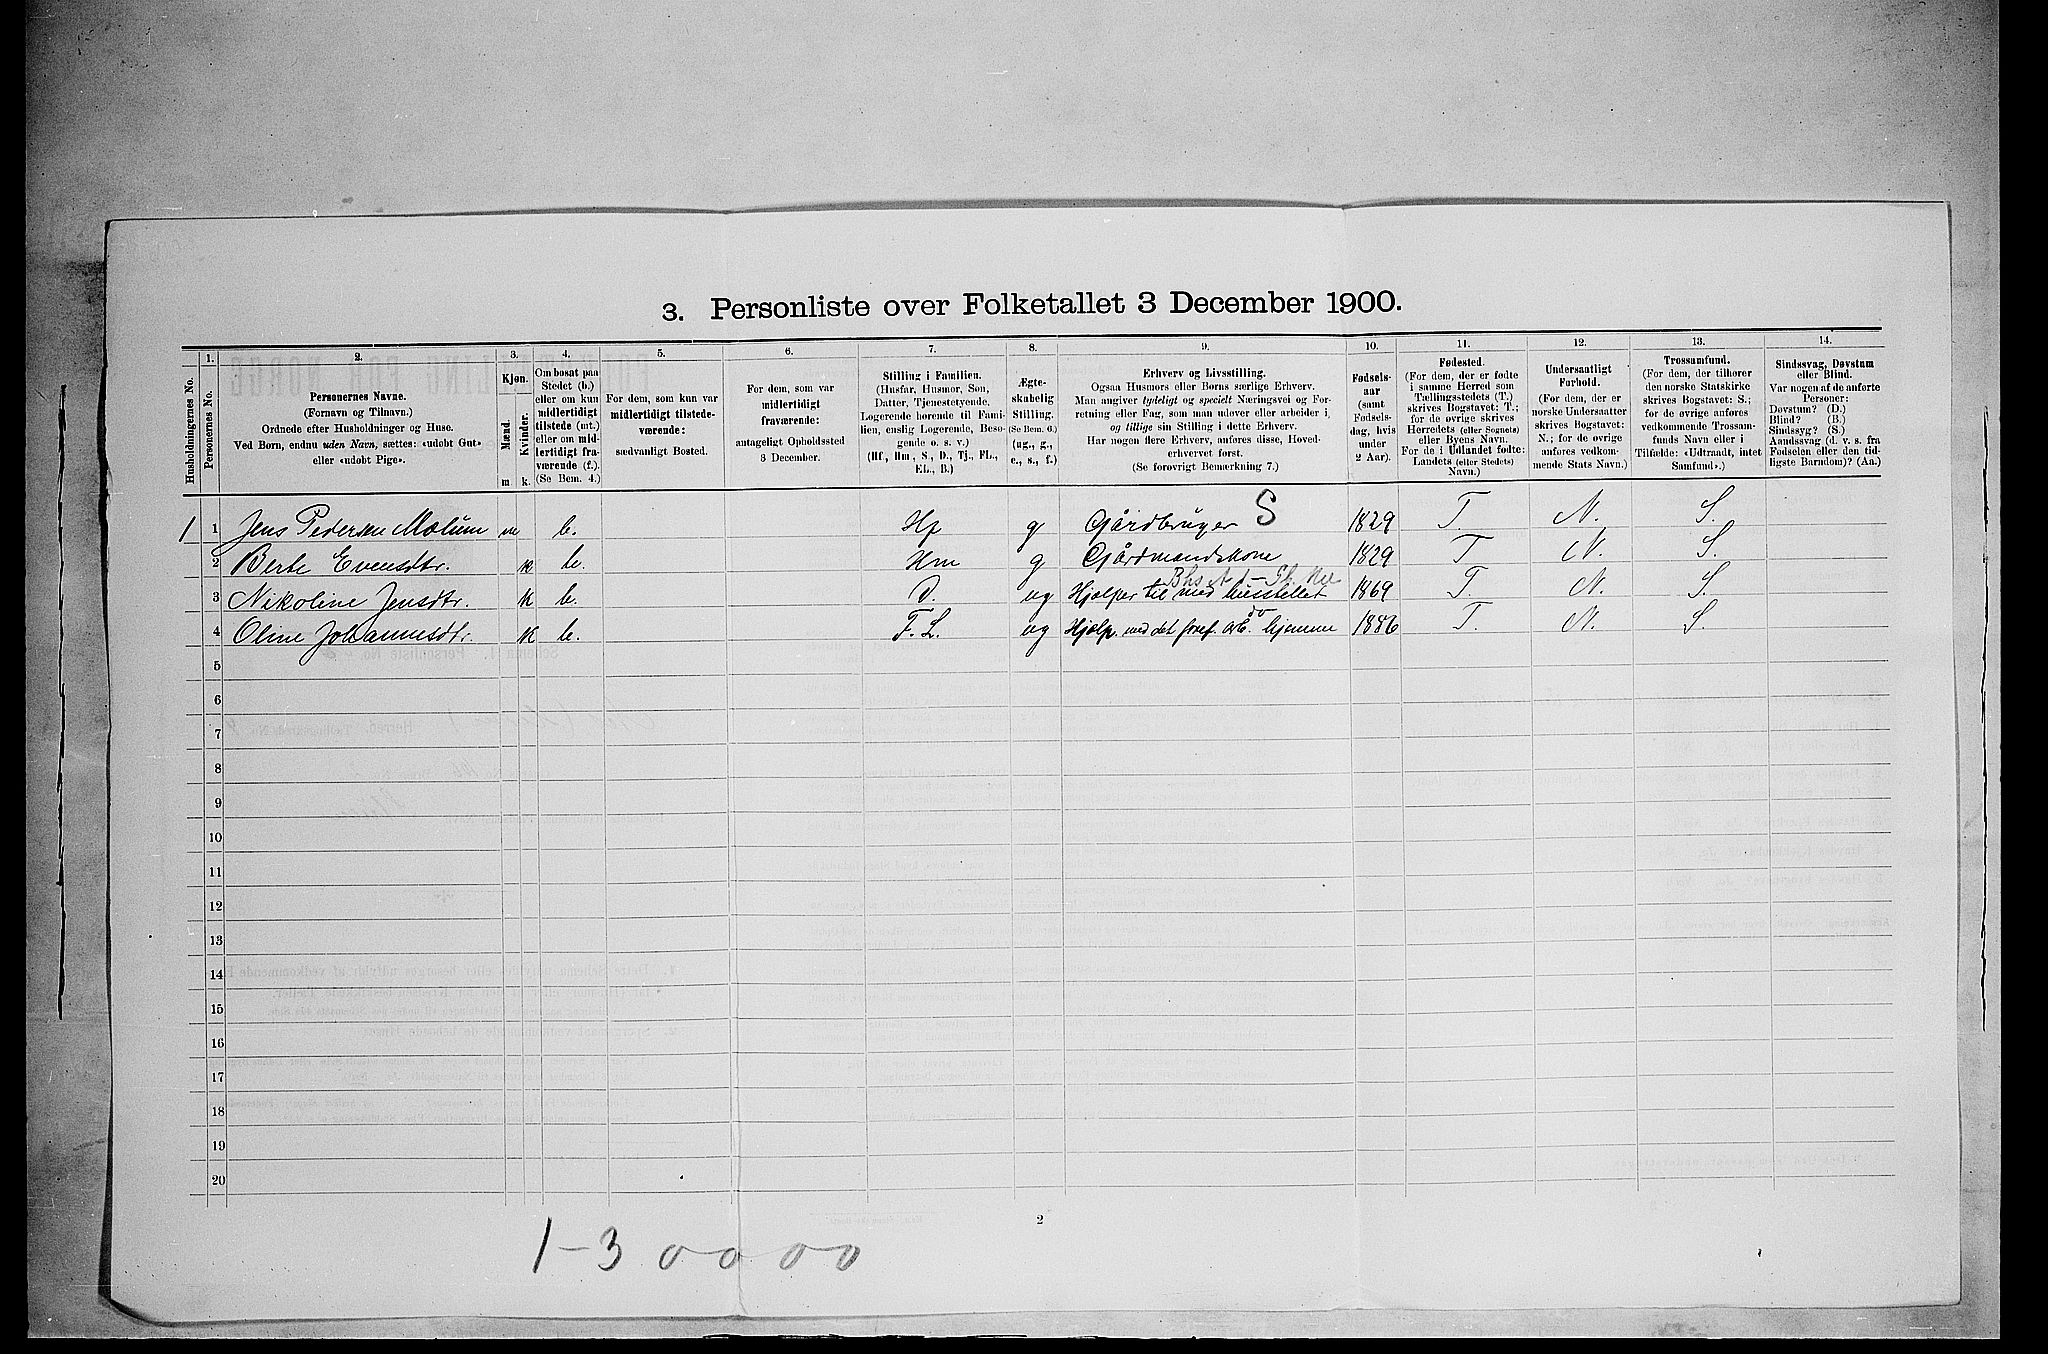 3. Personliste over Folketallet 3 December 1900.
Husholdningernes No.
1.
Personernes No.
2.
Personernes Navne.
(Fornavn og Tilnavn.)
Ordnede efter Husholdninger og Huse.
Ved Børn, endnu uden Navn, sættes: «udøbt Gut»
eller «udøbt Pige».
3.
Kjøn.
Mænd.
Kvinder.
m. k.
4.
Om bosat paa
Stedet (b.)
eller om kun
midlertidigt
tilstede (mt.)
eller om mid-
lertidigt fra-
værende (f.).
(Se Bem. 4.)
5.
For dem, som kun var
midlertidigt tilstede-
værende:
sædvanligt Bosted.
6.
For dem, som var
midlertidigt
fraværende:
antageligt Opholdssted
3 December.
7.
Stilling i Familien.
(Husfar, Husmor, Søn,
Datter, Tjenestetyende,
Logerende hørende til Fami-
lien, enslig Logerende, Besø-
gende o. s. v.)
(Hf., Hm., S., D., Tj., FL.,
EL., B.)
8.
Ægte-
skabelig
Stilling.
(Se Bem. 6.)
(ug., g.,
e., s., f.)
9.
Erhverv og Livsstilling.
Ogsaa Husmors eller Børns særlige Erhverv.
Man angiver tydeligt og specielt Næringsvei og For-
retning eller Fag, som man udøver eller arbeider i,
og tillige sin Stilling i dette Erhverv.
Har nogen flere Erhverv, anføres disse, Hoved-
erhvervet først.
(Se forøvrigt Bemærkning 7.)
10.
Fødsels-
aar
(samt
Fødsels-
dag, hvis
under
2 Aar).
11.
Fødested.
(For dem, der er fødte
i samme Herred som
Tællingsstedets (T.)
skrives Bogstavet: T.;
for de øvrige skrives
Herredets (eller Sognets)
eller Byens Navn.
For de i Udlandet fødte:
Landets (eller Stedets)
Navn.)
12.
Undersaatligt
Forhold.
(For dem, der er
norske Undersaatter
skrives Bogstavet:
N.; for de øvrige
anføres vedkom-
mende Stats Navn.)
13.
Trossamfund.
(For dem, der tilhører
den norske Statskirke
skrives Bogstavet: S.;
for de øvrige anføres
vedkommende Trossam-
funds Navn eller i
Tilfælde: «Udtraadt, intet
Samfund».)
14.
Sindssvag, Døvstum
eller Blind.
Var nogen af de anførte
Personer:
Døvstum? (D.)
Blind? (B.)
Sindssyg? (S.)
Aandssvag (d. v. s. fra
Fødselen eller den tid-
ligste Barndom)? (Aa.)
1 1 Jens Pedersen Mælum m b. Hf g Gårdbruger S 1829 T. N. S.
2 Berte Evensdtr. k b. Hm g Gårdmandskone 1829 T N. S.
3 Nikoline Jensdtr. k b. D. ug Hjælper til med husstellet 1869 T. N. S.
4 Oline Johannesdtr. k b. F. L. ug Hjælp. med det foref. arb. hjemme 1886 T. N. S.
5
6
7
8
9
10
11
12
13
14
15
16
17
18
19
20
2
1-3 0 0 0 0